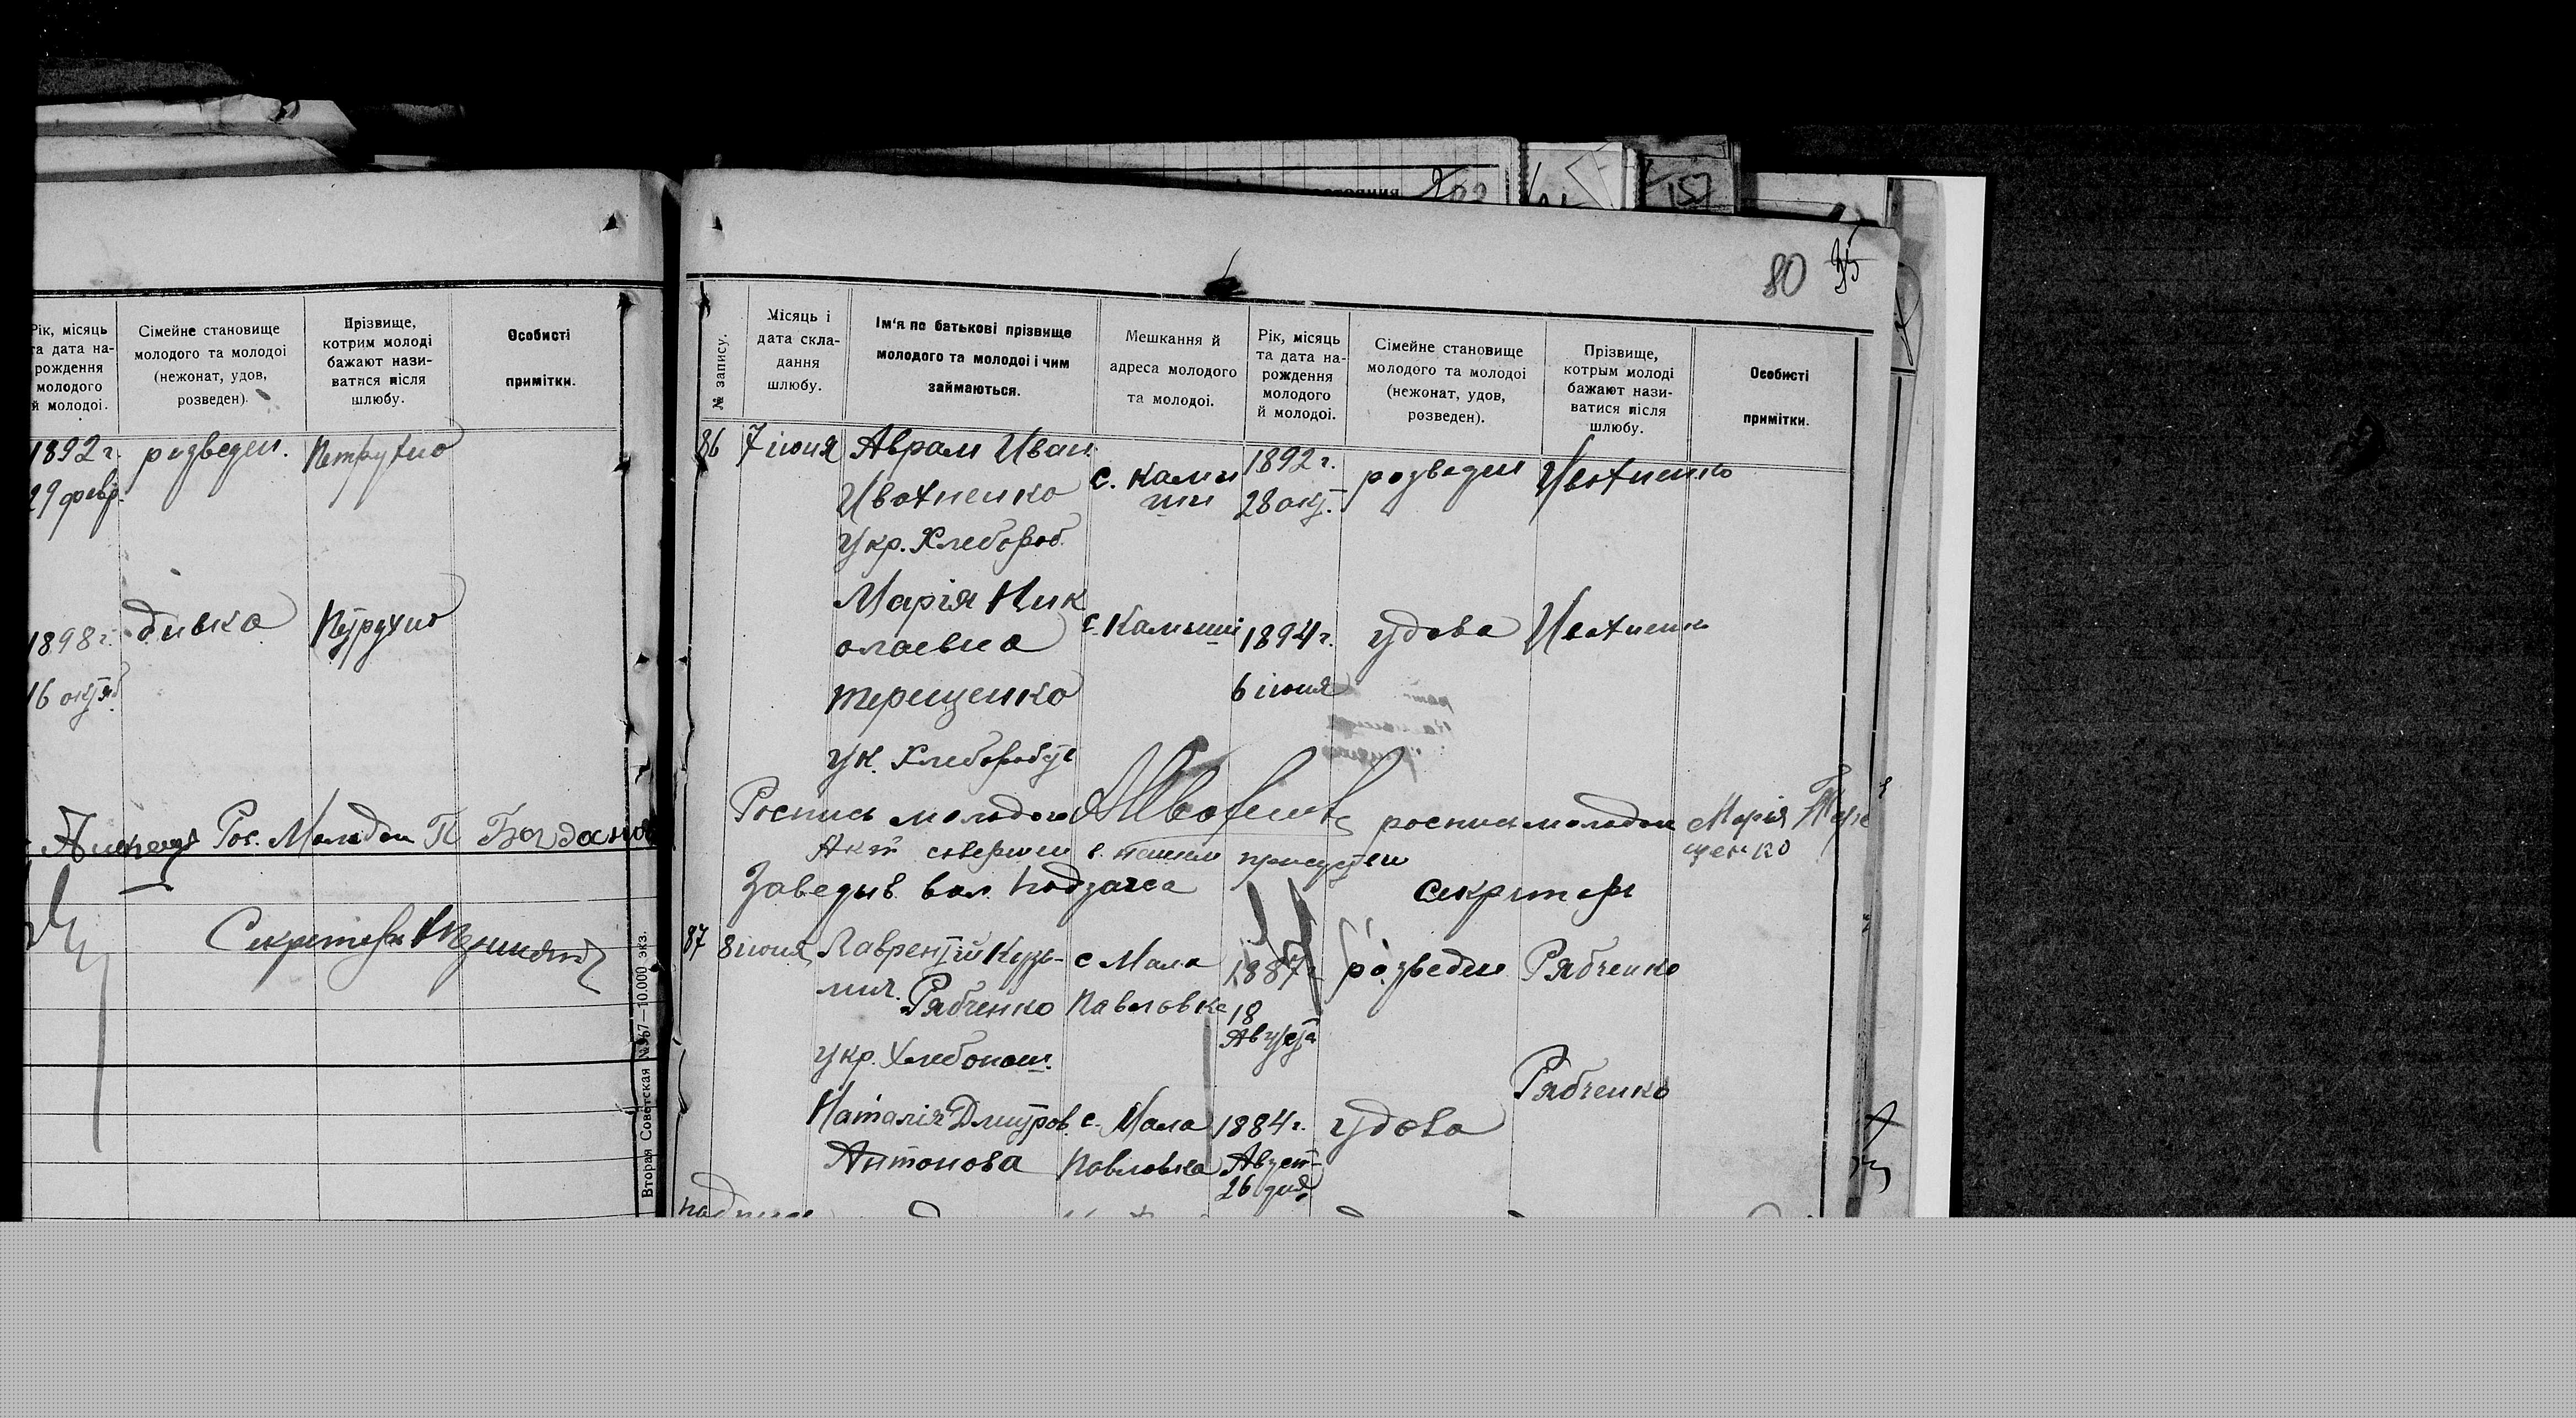 Рік, місяць
та дата на-
рождення
молодого
й молодоі.
Сімейне становище
молодого та молодоі
(нежонат, удов,
розведен).
Прізвище,
котрим молоді
бажают нази-
ватися після
шлюбу.
Особисті
примітки.
1892 г.
29 февр.
розведен.
Петрухно
1898 г.
16 октяб
дивка
Петрухно
Рос. Молодои П Богдано
Секретарь
Вторая Советская №367—10.000 экз.
80
35
№ запису.
Місяць і
дата скла-
дання
шлюбу.
Ім'я по батькові прізвище
молодого та молодоі і чим
займаються.
Мешкання й
адреса молодого
та молодоі.
Рік, місяць
та дата на-
рождення
молодого
й молодоі.
Сімейне становище
молодого та молодоі
(нежонат, удов,
розведен).
Прізвище,
котрым молоді
бажают нази-
ватися після
шлюбу.
Особисті
примітки.
86
7 июня
Аврам Иван
Ивахненко
Укр. Хлебороб.
с. Камы
ши
1892 г.
28 окт.
розведен
Ивахненко
Марія Ник
олаевна
Терещенко
ук. Хлебороб
с. Камыши
1894 г.
6 июня
удова
Ивахненко
Роспись молодого
роспись молодои Марія Тере
щенко
Акт совершен в нашем присутствии
Заведыв. вол. подзагса
Секритарь
87
8 июня
Лаврентій Кузь-
мич. Рябченко
укр. Хлебопаш.
с Мала
Павловка
1887 г.
18
Августа
розведен
Рябченко
Наталія Дмитров.
Антонова
с. Мала
Павловка
1884 г.
Август
26 дня
удова
Рябченко